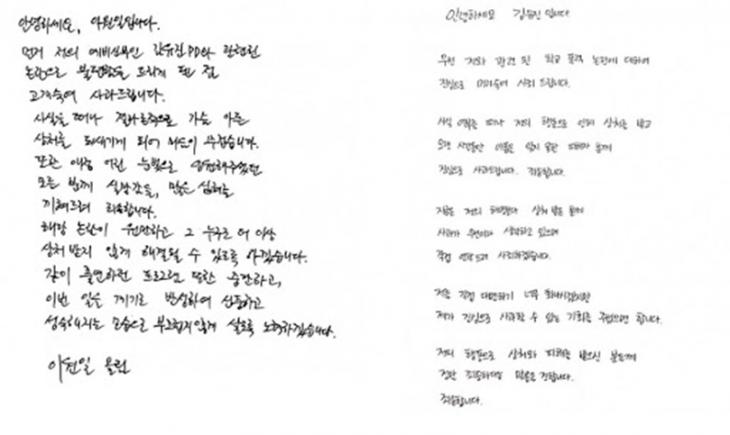 안녕하세요, 이원일입니다.
먼저 저의 예비신부인 김유진PD와 관련된
논란으로 불편함을 드리게 된 점
고개숙여 사과드립니다.
사실을 떠나 결과론적으로 가슴 아픈
상처를 되새기게 되어 마음이 무겁습니다.
또한 애정 어린 눈빛으로 응원해주셨던
모든 분께 실망감을, 많은 심려를
끼쳐드려 죄송합니다.
해당 논란이 원만하고 그 누구도 더 이상
상처 받지 않게 해결될 수 있도록 하겠습니다.
같이 출연하던 프로그램 또한 중단하고,
이번 일을 계기로 반성하여 신중하고
성숙해지는 모습으로 부끄럽지않게 살도록 노력하겠습니다.
이원일 올림
안녕하세요 김유진 입니다
우선 저와 관련된 학교 폭력 논란에 대하여
진심으로 머리숙여 사죄 드립니다.
사실 여부를 떠나 저의 행동으로 인해 상처를 받고
오랜 시간동안 아픔을 잊지 못한 피해자 분께
진심으로 사과드립니다. 죄송합니다.
지금은 저의 해명보다 상처 받은 분께
사과가 우선이라 생각하고 있으며
직접 연락 드려 사죄하겠습니다.
저를 직접 대면하기 너무 화나시겠지만
제가 진심으로 사과할 수 있는 기회를 주셨으면 합니다.
저의 행동으로 상처와 피해를 받으신 분들께
정말 죄송하다는 말씀을 전합니다.
죄송합니다.